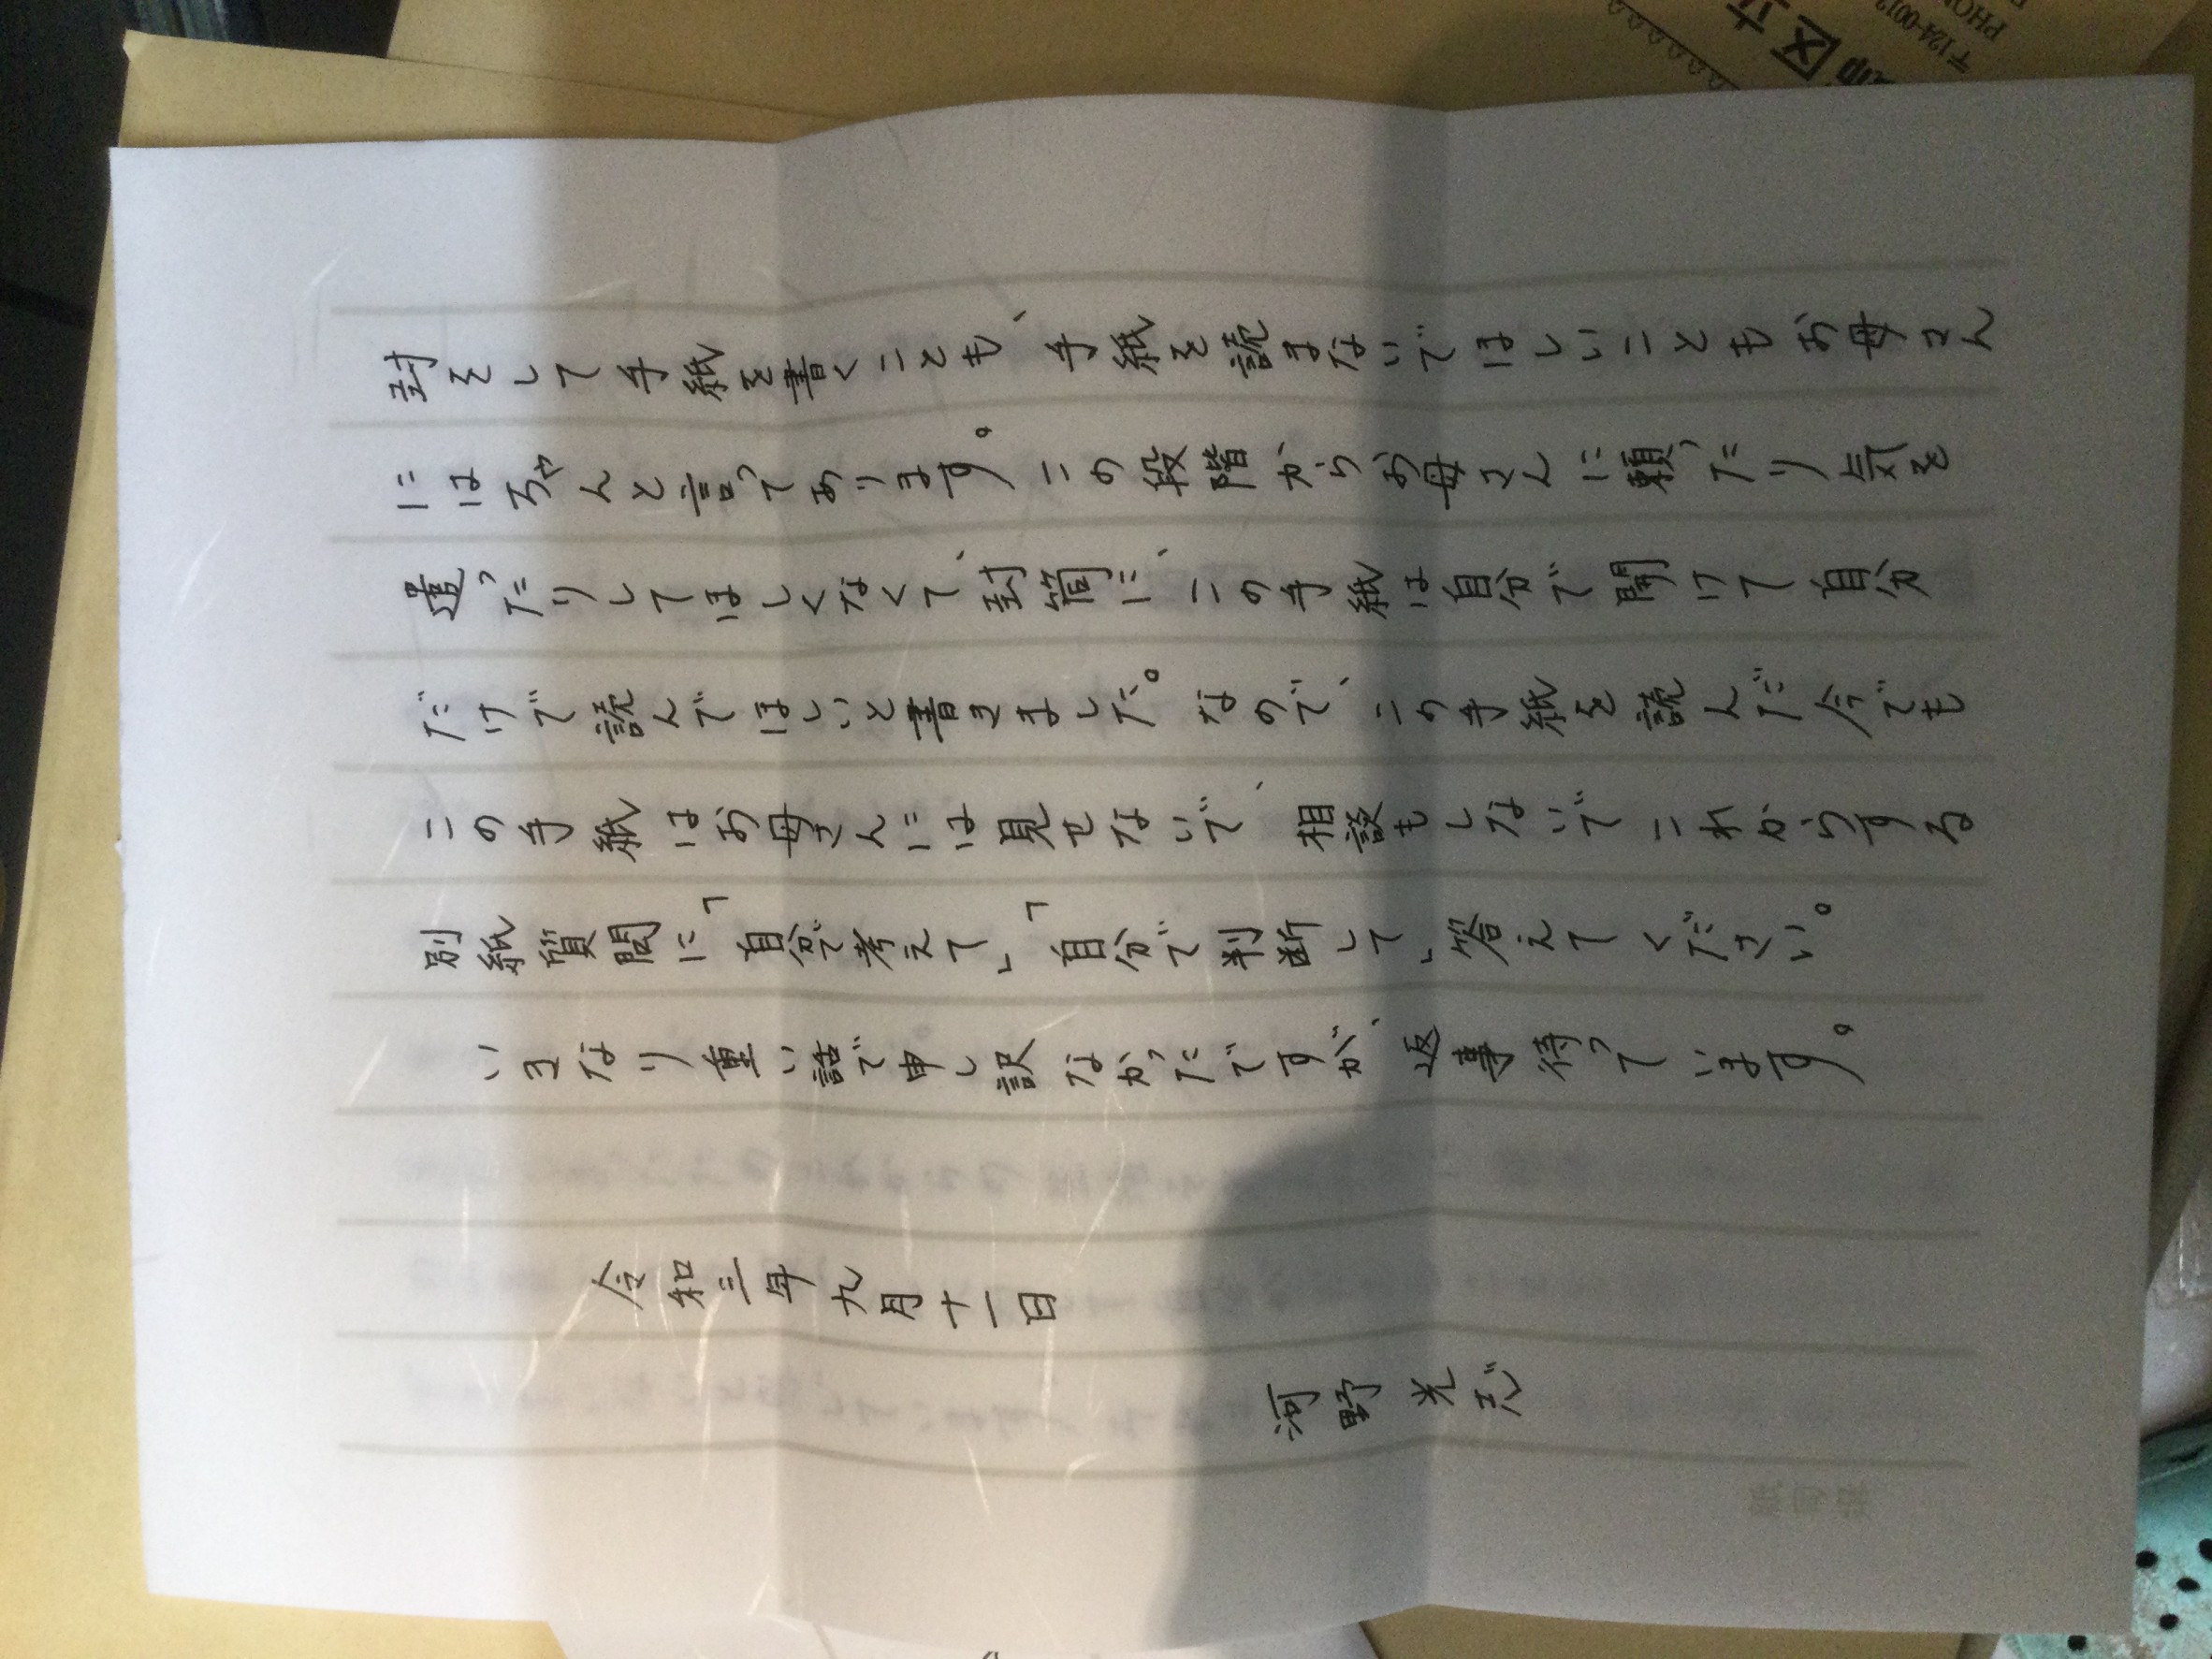 封をして手紙を書くことも、手紙を読まないでほしいこともお母さん
にはちゃんと言ってあります。この段階からお母さんに頼ったり気を
遣ったりしてほしくなくて、封筒に、この手紙は自分で開けて自分
だけで読んでほしいと書きました。なので、この手紙を読んだ今でも
この手紙はお母さんには見せないで、相談もしないでこれからする
別紙質問に「自分で考えて」「自分で判断して」答えてください。
いきなり重い話で申し訳なかったですが、返事待っています。
令和三年九月十一日
河野光
区立
〒124-0012
PHO